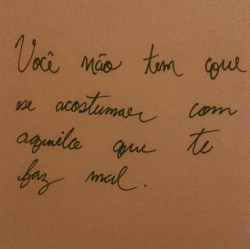 Você não tem que
se acostumar com
aquilo que te
faz mal.